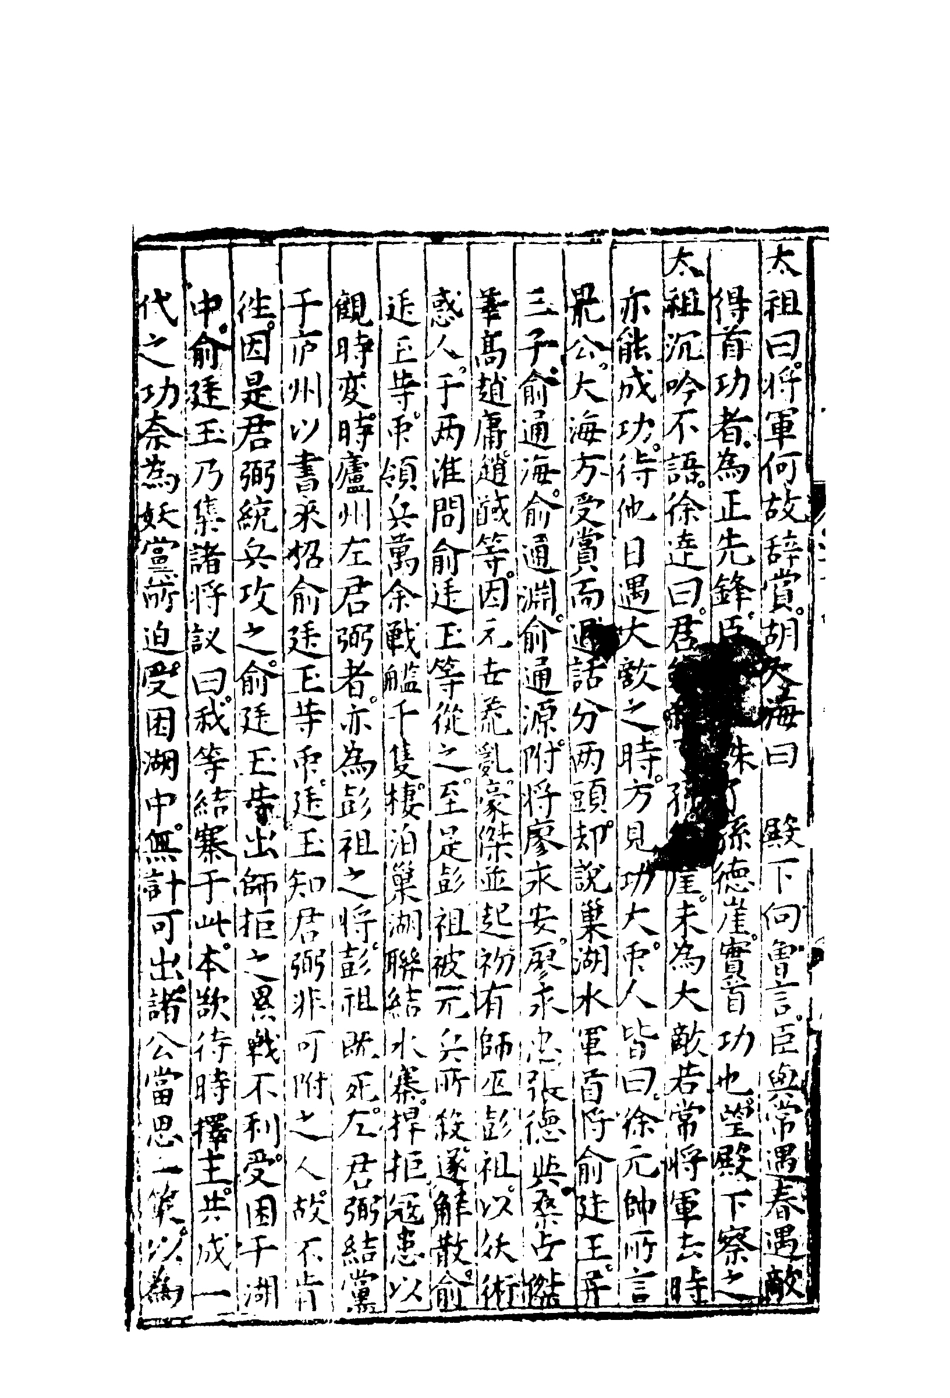 太祖曰。将軍何故辞賞。胡大海曰　殿下何曹言。臣與常遇春遇敵
得首功者。為正先鋒。臣 誅了孫德崖。實首功也。望殿下察之
太祖沉吟不語。徐逹曰。君 孫 崖。未為大敵若常将軍去時
亦能成功。待他日遇大敵之時。方見功大。衆人皆曰。徐元帥所言
最公。大海方受賞而退話分两頭。却說巢湖水軍首将俞廷玉。并
三子俞通海。俞通淵。俞通源附。将廖永安。廖永忠張德興。桑占傑
華高趙庸趙馘等。因元世荒亂。豪傑並起初有師巫彭祖。以妖術
惑人。于两淮間俞廷玉等從之。至是彭祖被元兵所殺遂解散俞
廷玉等衆。領兵萬余戰艦千隻。棲泊巢湖聯結水寨。捍拒冦患以
觀時変。時廬州左君弼者。亦為彭祖之将。彭祖既死。左君弼結黨
于庐州以書来招俞廷玉等衆。廷玉知君弼非可附之人。故不肯
徃。因是君弼統兵攻之。俞廷玉昔出師拒之累戰不利。受困于湖
中。俞廷玉乃集諸将議曰。我等結寨于此。本欲待時擇主。共成一
代之功奈為妖黨所迫。受困湖中。無計可出。諸公當思一策。以為